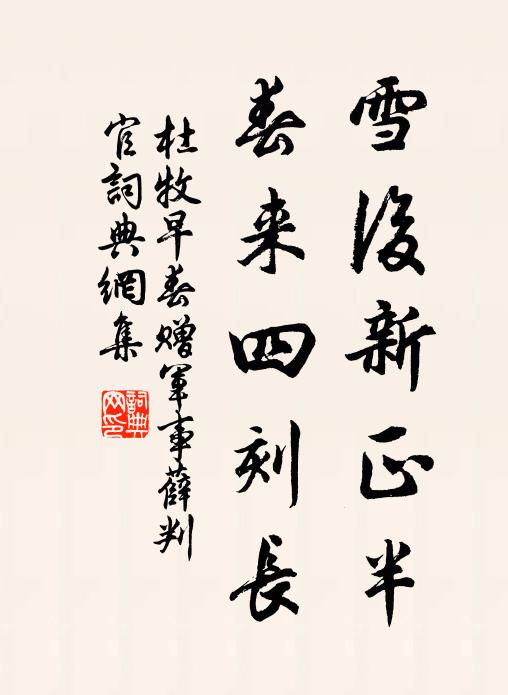 雪後新正半
春來四刻長
杜牧早春贈軍事薛判
官詞典網集
詞典
网印